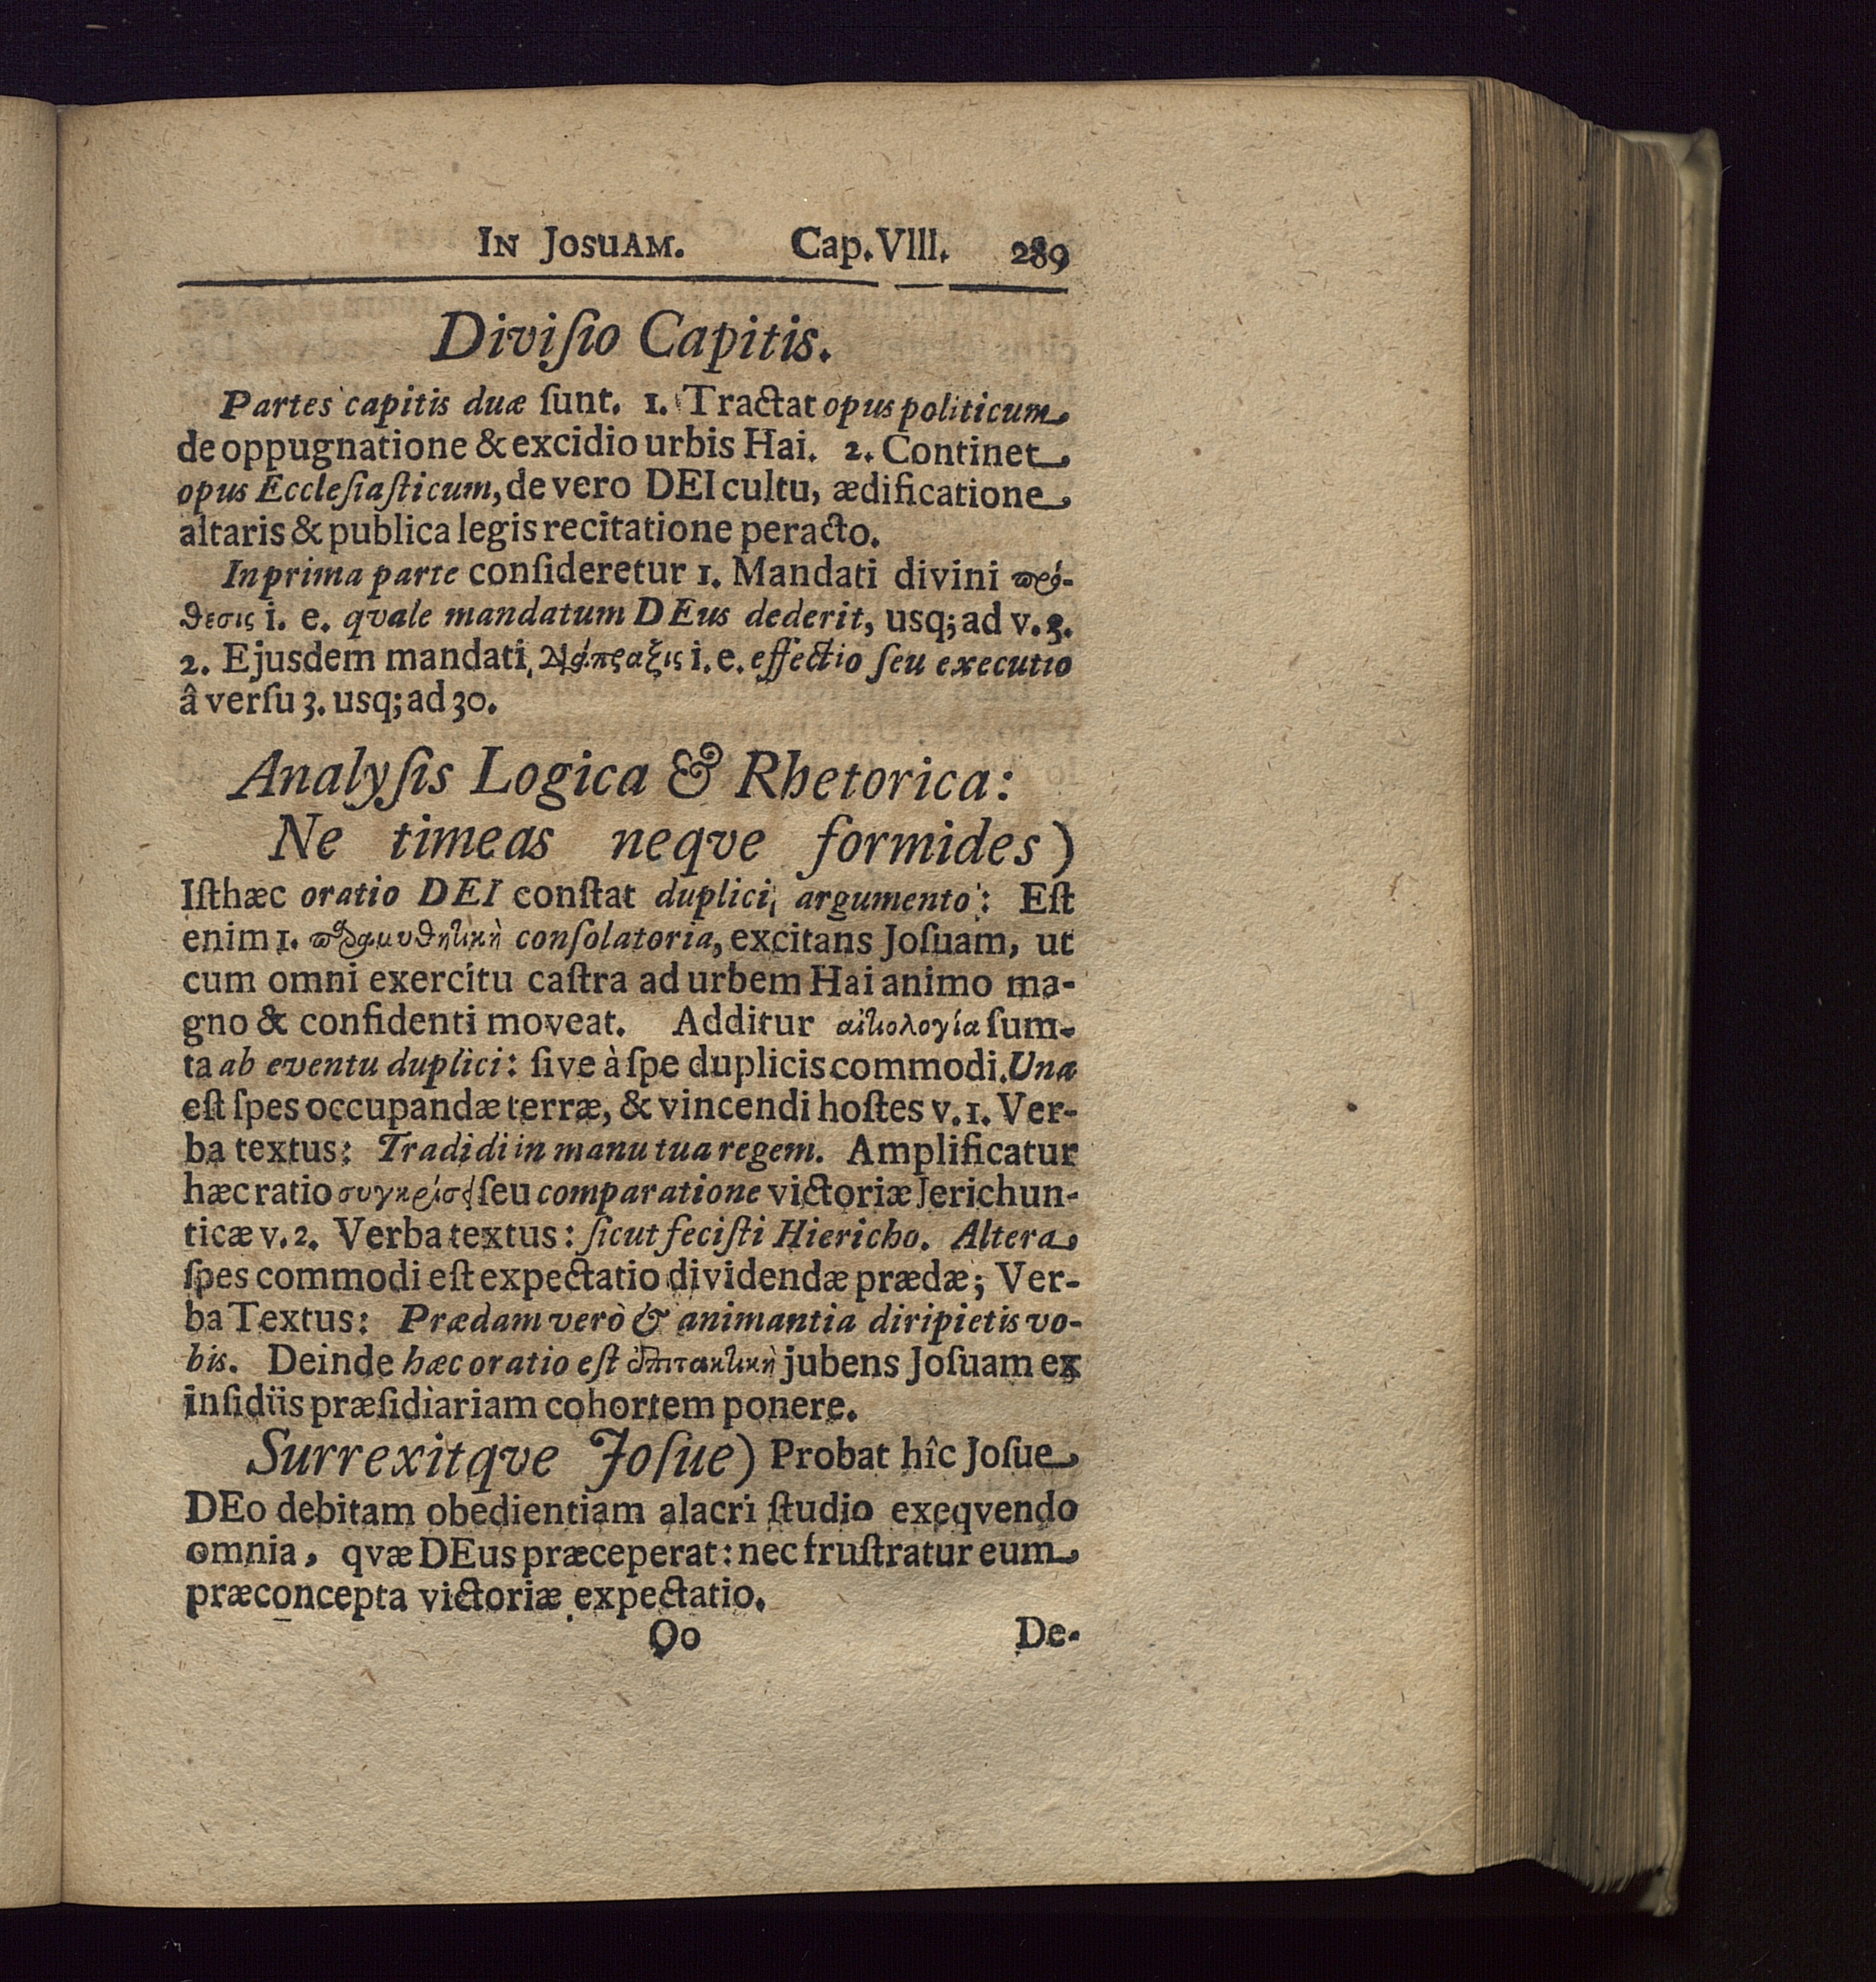 IN JOSUAM. Cap. VIII. 289
Diviſio Capitis.
Partes capitis duæ ſunt. 1. Tractat opus politicum
de oppugnatione & excidio urbis Hai. 2. Continet
opus Eccleſiaſticum, de vero DEI cultu, ædificatione
altaris & publica legis recitatione peracto.
In prima parte conſideretur 1. Mandati divini πρό-
θεσις i. e. qvale mandatum DEus dederit, usq; ad v. 3.
2. Ejusdem mandati διάπραξις i. e. effectio ſeu executio
â verſu 3. usq; ad 30.
Analyſis Logica & Rhetorica:
Ne timeas neqve formides)
Iſthæc oratio DEI conſtat duplici argumento: Eſt
enim 1. παραμυθητικὴ conſolatoria, excitans Joſuam, ut
cum omni exercitu caſtra ad urbem Hai animo ma-
gno & confidenti moveat. Additur αἰτιολογία ſum-
ta ab eventu duplici: ſive à ſpe duplicis commodi. Una
eſt ſpes occupandæ terræ, & vincendi hoſtes v. 1. Ver-
ba textus: Tradidi in manu tua regem. Amplificatur
hæc ratio συγκρίσει ſeu comparatione victoriæ Jerichun-
ticæ v. 2. Verba textus: ſicut feciſti Hiericho. Altera
ſpes commodi eſt expectatio dividendæ prædæ; Ver-
ba Textus: Prædam verò & animantia diripietis vo-
bis. Deinde hæc oratio eſt ἐπιτακτικὴ jubens Joſuam ex
inſidiis præſidiariam cohortem ponere.
Surrexitqve Joſue) Probat hîc Joſue
DEo debitam obedientiam alacri ſtudio exeqvendo
omnia, qvæ DEus præceperat: nec fruſtratur eum
præconcepta victoriæ expectatio.
Oo De-